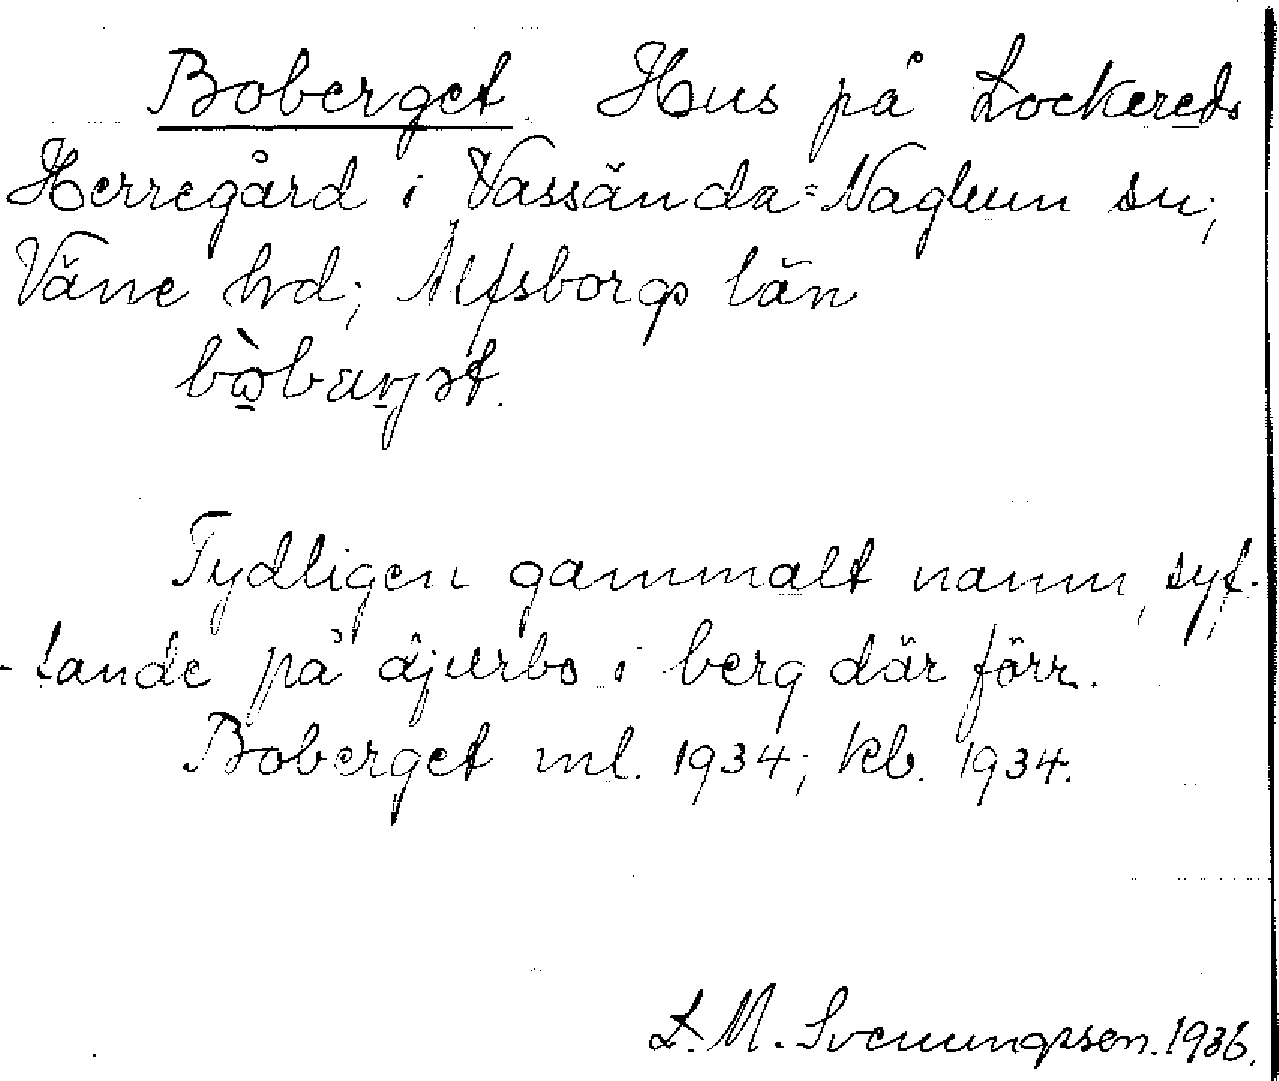 Boberget Hus på Lockereds
Herregård i Vassända=Naglum sn;
Väne hrd; Älfsborgs län
Tydligen gammalt namn, syf-
-tande på djurbo i berg där förr.
Boberget ml. 1934; kb. 1934.
L. M. Svenungsson. 1936.